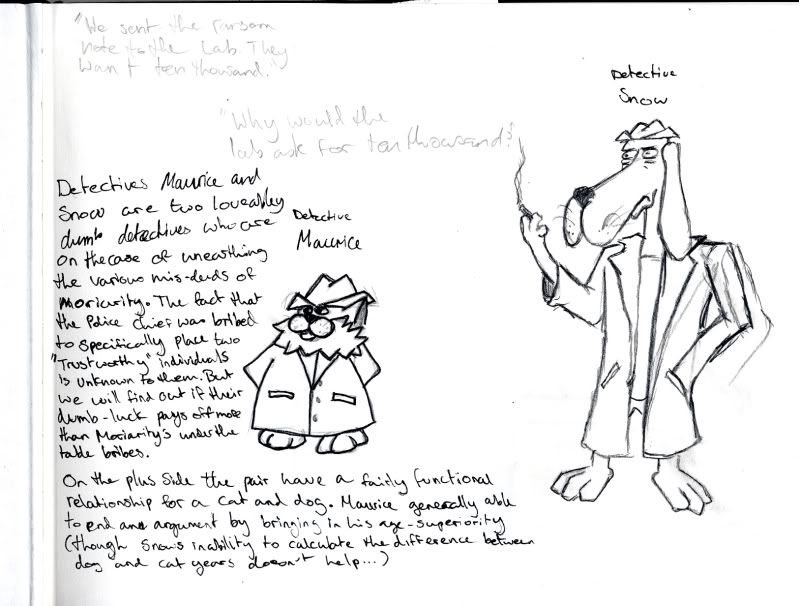 "We sent the ransom
note to the lab. They
want ten thousand."
"Why would the
lab ask for ten thousand?"
Detective
Snow
Detectives Maurice and
Snow are two loveabley
dumb detectives who are
on the case of unearthing
the various mis-deeds of
moriarity. The fact that
the Police Chief was bribed
to specifically place two
"Trustworthy" individuals
is unknown to them. But
we will find out if their
dumb-luck pays off more
than Moriarity's under the
table bribes.
Detective
Maurice
On the plus side the pair have a fairly functional
relationship for a cat and dog. Maurice generally able
to end an argument by bringing in his age-superiority
(though Snow's inability to calculate the difference between
dog and cat years doesn't help...)